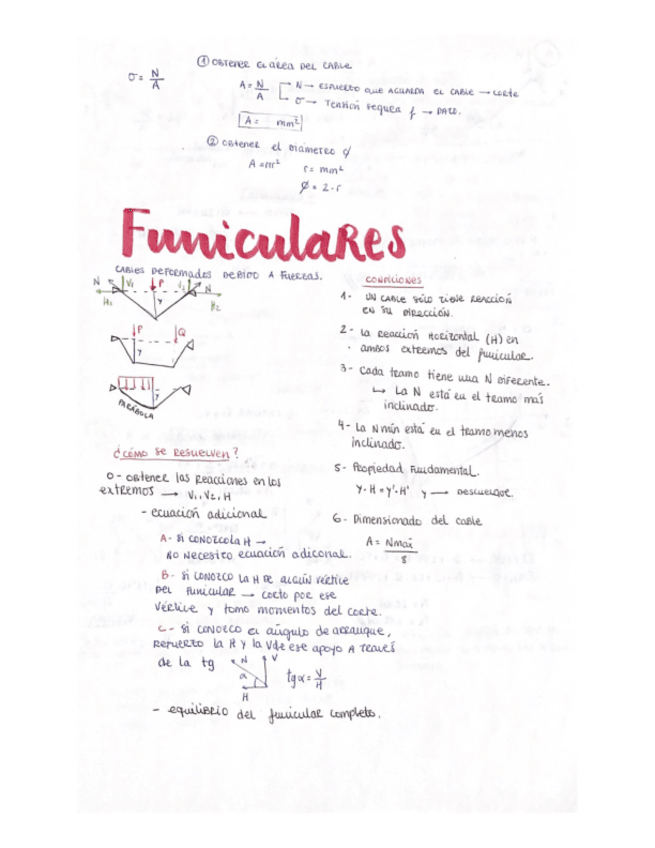 ① OBTENER EL ÁREA DEL CABLE
σ = N/A
A = N/A N → ESFUERZO QUE AGUANTA EL CABLE → CORTE
σ → TENSIÓN SEGURA f → DATO.
A = mm²
② OBTENER EL DIÁMETRO ø
A = πr² r = mm²
Ø = 2·r
FUNICULARES
CABLES DEFORMADOS DEBIDO A FUERZAS.
N V₁ P V₂ N
H₁ y H₂
P Q
y
y
PARÁBOLA
¿CÓMO SE RESUELVEN?
0- OBTENER LAS REACCIONES EN LOS
EXTREMOS → V₁, V₂, H
- ECUACIÓN ADICIONAL
A- SI CONOZCO LA H →
NO NECESITO ECUACIÓN ADICONAL.
B- SI CONOZCO LA H DE ALGÚN VÉRTICE
DEL FUNICULAR → CORTO POR ESE
VÉRTICE Y TOMO MOMENTOS DEL CORTE.
C- SI CONOZCO EL ÁNGULO DE ARRANQUE,
LA H Y LA V DE ESE APOYO A TRAVÉS
DE LA tg
N V
α tgα = V/H
H
- EQUILIBRIO DEL FUNICULAR COMPLETO.
CONDICIONES
1- UN CABLE SÓLO TIENE REACCIÓN
EN SU DIRECCIÓN.
2- LA REACCIÓN HORIZONTAL (H) EN
AMBOS EXTREMOS DEL FUNICULAR.
3- CADA TRAMO TIENE UNA N DIFERENTE.
↳ LA N ESTÁ EN EL TRAMO MÁS
INCLINADO.
4- LA N MÍN ESTÁ EN EL TRAMO MENOS
INCLINADO.
5- PROPIEDAD FUNDAMENTAL.
Y·H = Y'·H' Y → DESCUELGUE
6- DIMENSIONADO DEL CABLE
A = Nmax